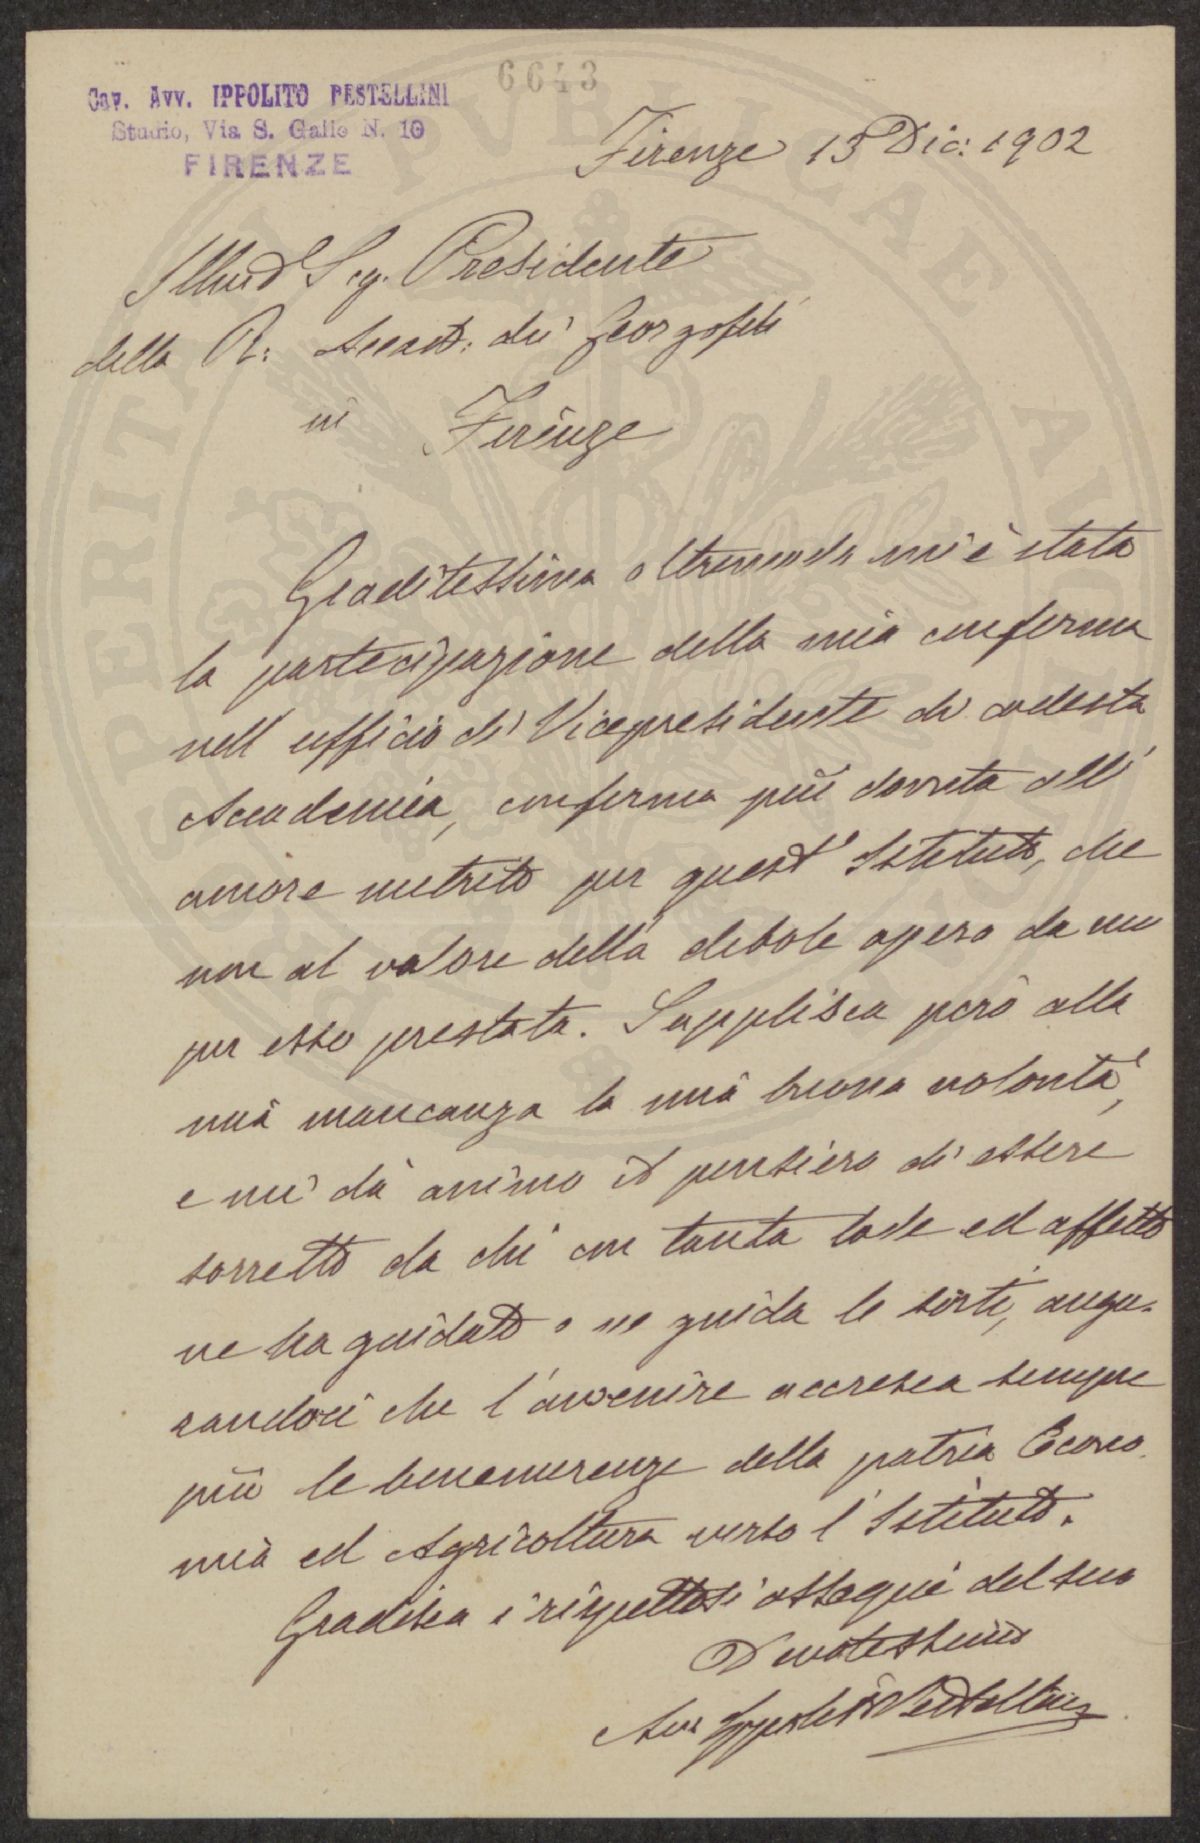 6643
Cav. Avv. IPPOLITO PESTELLINI
Studio, Via S. Gallo N. 10
FIRENZE
Firenze 15 Dic: 1902
Illmo Sig. Presidente
della R: Accad: dei Georgofili
in Firenze
Graditissima oltremodo mi è stata
la partecipazione della mia conferma
nell'ufficio di Vicepresidente di codesta
Accademia, conferma più dovuta all'
amore nutrito per quest'Istituto, che
non al valore della debole opera da me
per esso prestata. Supplisca però alla
mia mancanza la mia buona volontà,
e mi dà animo il pensiero di essere
sorretto da chi con tanta lode ed affetto
ne ha guidato e ne guida le sorti, augu-
randoci che l'avvenire accresca sempre
più le benemerenze della patria Econo
mia ed Agricoltura verso l'Istituto.
Gradisca i rispettosi ossequi del suo
Devotissimo
Avv Ippolito Pestellini